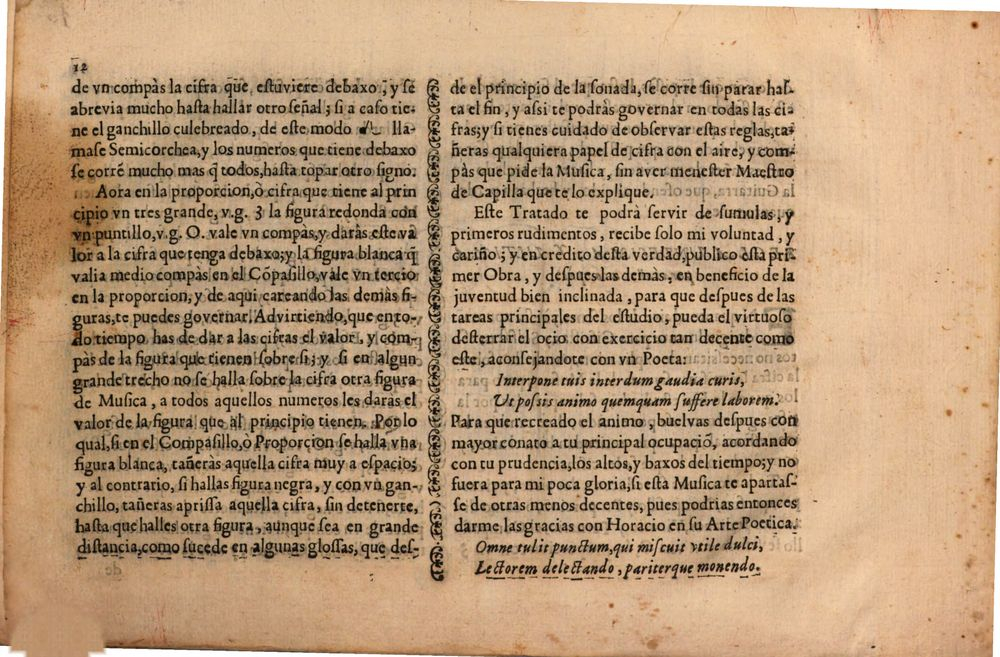 12
de vn compàs la cifra que estuviere debaxo; y se
abrevia mucho hasta hallar otro señal; si a caso tie-
ne el ganchillo culebreado, de este modo lla-
mase Semicorchea, y los numeros que tiene debaxo
se corrẽ mucho mas q̃ todos, hasta topar otro signo.
Aora en la proporcion, ò cifra que tiene al prin
cipio vn tres grande, v.g. 3 la figura redonda con
vn puntillo, v.g. O. vale vn compàs, y daràs este va
lor a la cifra que tenga debaxo; y la figura blanca q̃
valia medio compàs en el Cõpasillo, vale vn tercio
en la proporcion, y de aqui careando las demàs fi-
guras, te puedes governar. Advirtiendo, que en to-
do tiempo has de dar a las cifras el valor, y com-
pàs de la figura que tienen sobre si; y si en algun
grande trecho no se halla sobre la cifra otra figura
de Musica, a todos aquellos numeros les daràs el
valor de la figura que al principio tienen. Por lo
qual, si en el Compasillo, ò Proporcion se halla vna
figura blanca, tañeràs aquella cifra muy a espacio;
y al contrario, si hallas figura negra, y con vn gan-
chillo, tañeras aprissa aquella cifra, sin detenerte,
hasta que halles otra figura, aunque sea en grande
distancia, como sucede en algunas glossas, que des-
de el principio de la sonada, se corre sin parar has-
ta el fin, y assi te podràs governar en todas las ci-
fras; y si tienes cuidado de observar estas reglas, ta-
ñeras qualquiera papel de cifra con el aire, y com-
pàs que pide la Musica, sin aver menester Maestro
de Capilla que te lo explique.
Este Tratado te podrà servir de sumulas, y
primeros rudimentos, recibe solo mi voluntad, y
cariño; y en credito desta verdad, publico esta pri-
mer Obra, y despues las demàs, en beneficio de la
juventud bien inclinada, para que despues de las
tareas principales del estudio, pueda el virtuoso
desterrar el ocio con exercicio tan decente como
este, aconsejandote con vn Poeta:
Interpone tuis interdum gaudia curis,
Vt possis animo quemquam suffere laborem.
Para que recreado el animo, buelvas despues con
mayor conato a tu principal ocupaciõ, acordando
con tu prudencia, los altos, y baxos del tiempo; y no
fuera para mi poca gloria, si esta Musica te apartas-
se de otras menos decentes, pues podrias entonces
darme las gracias con Horacio en su Arte Poetica.
Omne tulit punctum, qui miscuit vtile dulci,
Lectorem delectando, pariterque monendo.